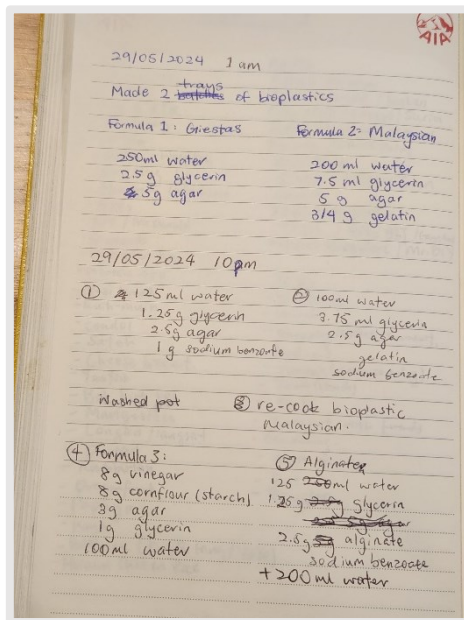 AIA
29/05/2024 1 am
Made 2 trays of bioplastics
Formula 1: Griestas
250ml water
2.5g glycerin
5g agar
Formula 2: Malaysian
200 ml water
7.5 ml glycerin
5 g agar
3/4 g gelatin
29/05/2024 10pm
① 125ml water
1.25g glycerin
2.5g agar
1g sodium benzoate
② 100ml water
3.75 ml glycerin
2.5g agar
gelatin
sodium benzoate
Washed pot
③ re-cook bioplastic
Malaysian.
④ Formula 3:
8g vinegar
8g cornflour (starch)
3g agar
1g glycerin
100ml water
⑤ Alginate
125 ml water
1.25g glycerin
2.5g alginate
sodium benzoate
+200ml water